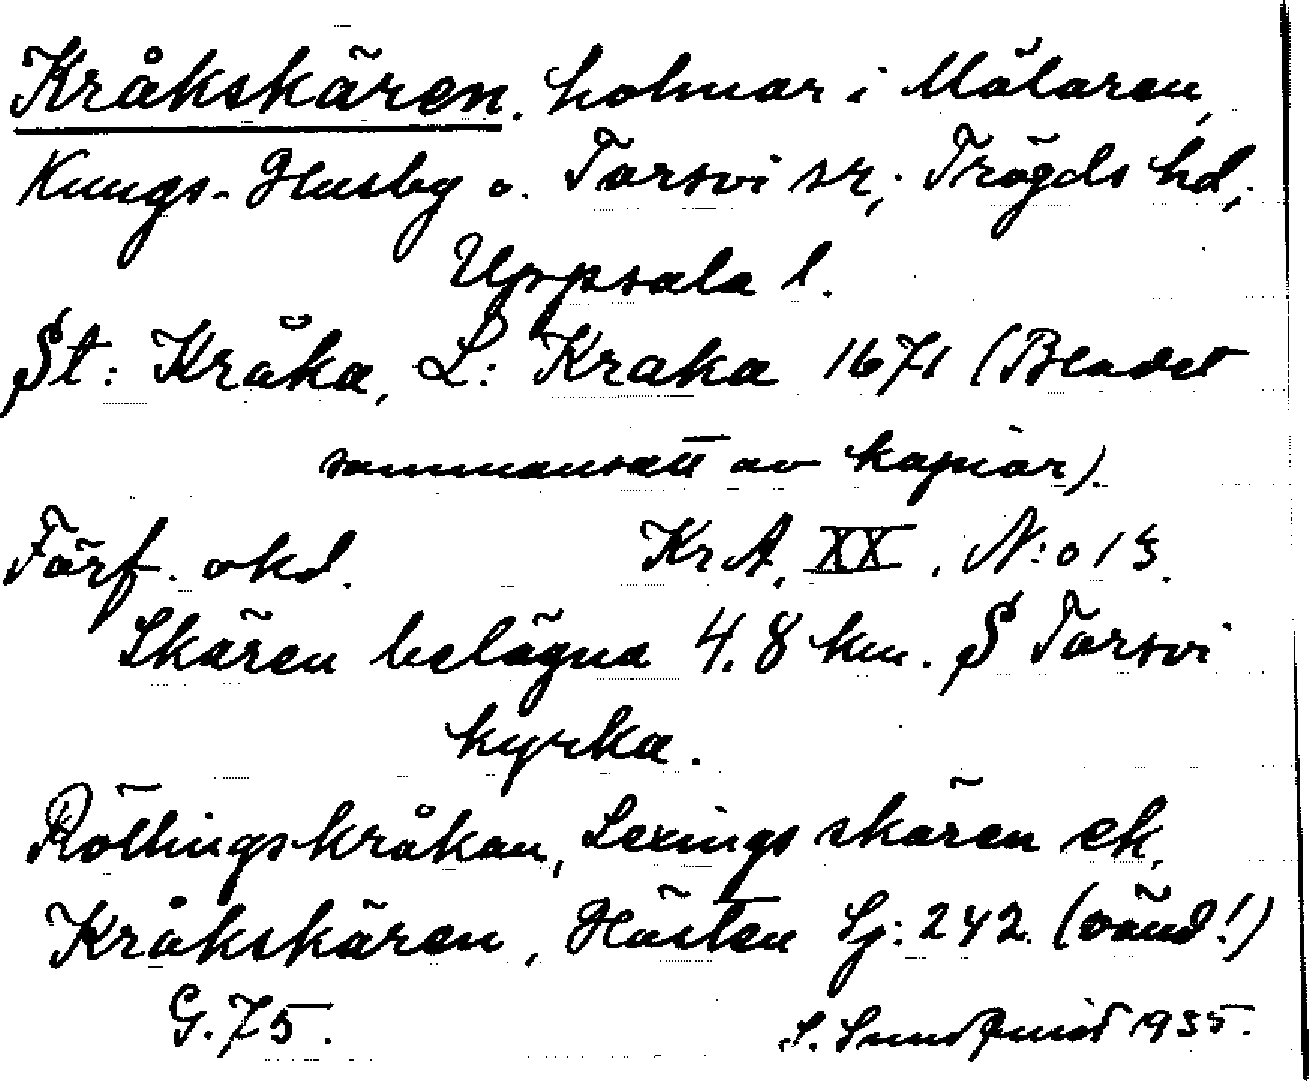 Kråkskären. holmar i Mälaren,
Kungs-Husby o. Torsvi sr, Trögds hd,
Uppsala l.
St: Kråka, L: Kraka 1671 (Bladet
sammansatt av kopior).
Förf. okd. KrA, XX, N:o 13.
Skären belägna 4.8 km. S Torsvi
kyrka.
Röllingskråkan, Lexings skären ek.
Kråkskären, Hästen Sj: 242. (vänd!)
G. 75. S. Sundqvist 1935.